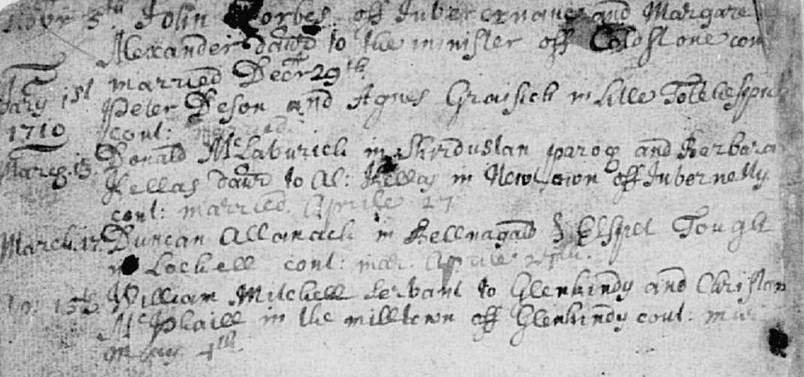 Novr 5th John Forbes off Inverernane and Margaret
Alexander dawr to the minister off Coldstone con
married Decr 29th
1st Peter Deson and Agnes in Litle
1710 cont: married
March 13 Donald McLavrich in parog and Barbara
Kellas dawr to Al: Kellas in Newtown off Invernetty
cont: married Aprile 27
March 17 Duncan Allanach in Bellnagald & Elspet Tough
in Lochell cont: mar: Aprile
15th William Mitchell servant to Glenkindy and Christan
McPhaill in the milltown off Glenkindy cont: mar
4th